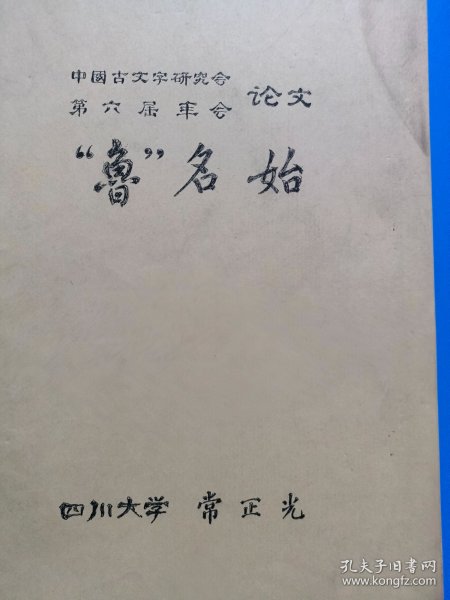 中國古文字研究会
第六届年会 论文
“鲁”名始
四川大学 常正光
孔夫子旧书网
www.kongfz.com